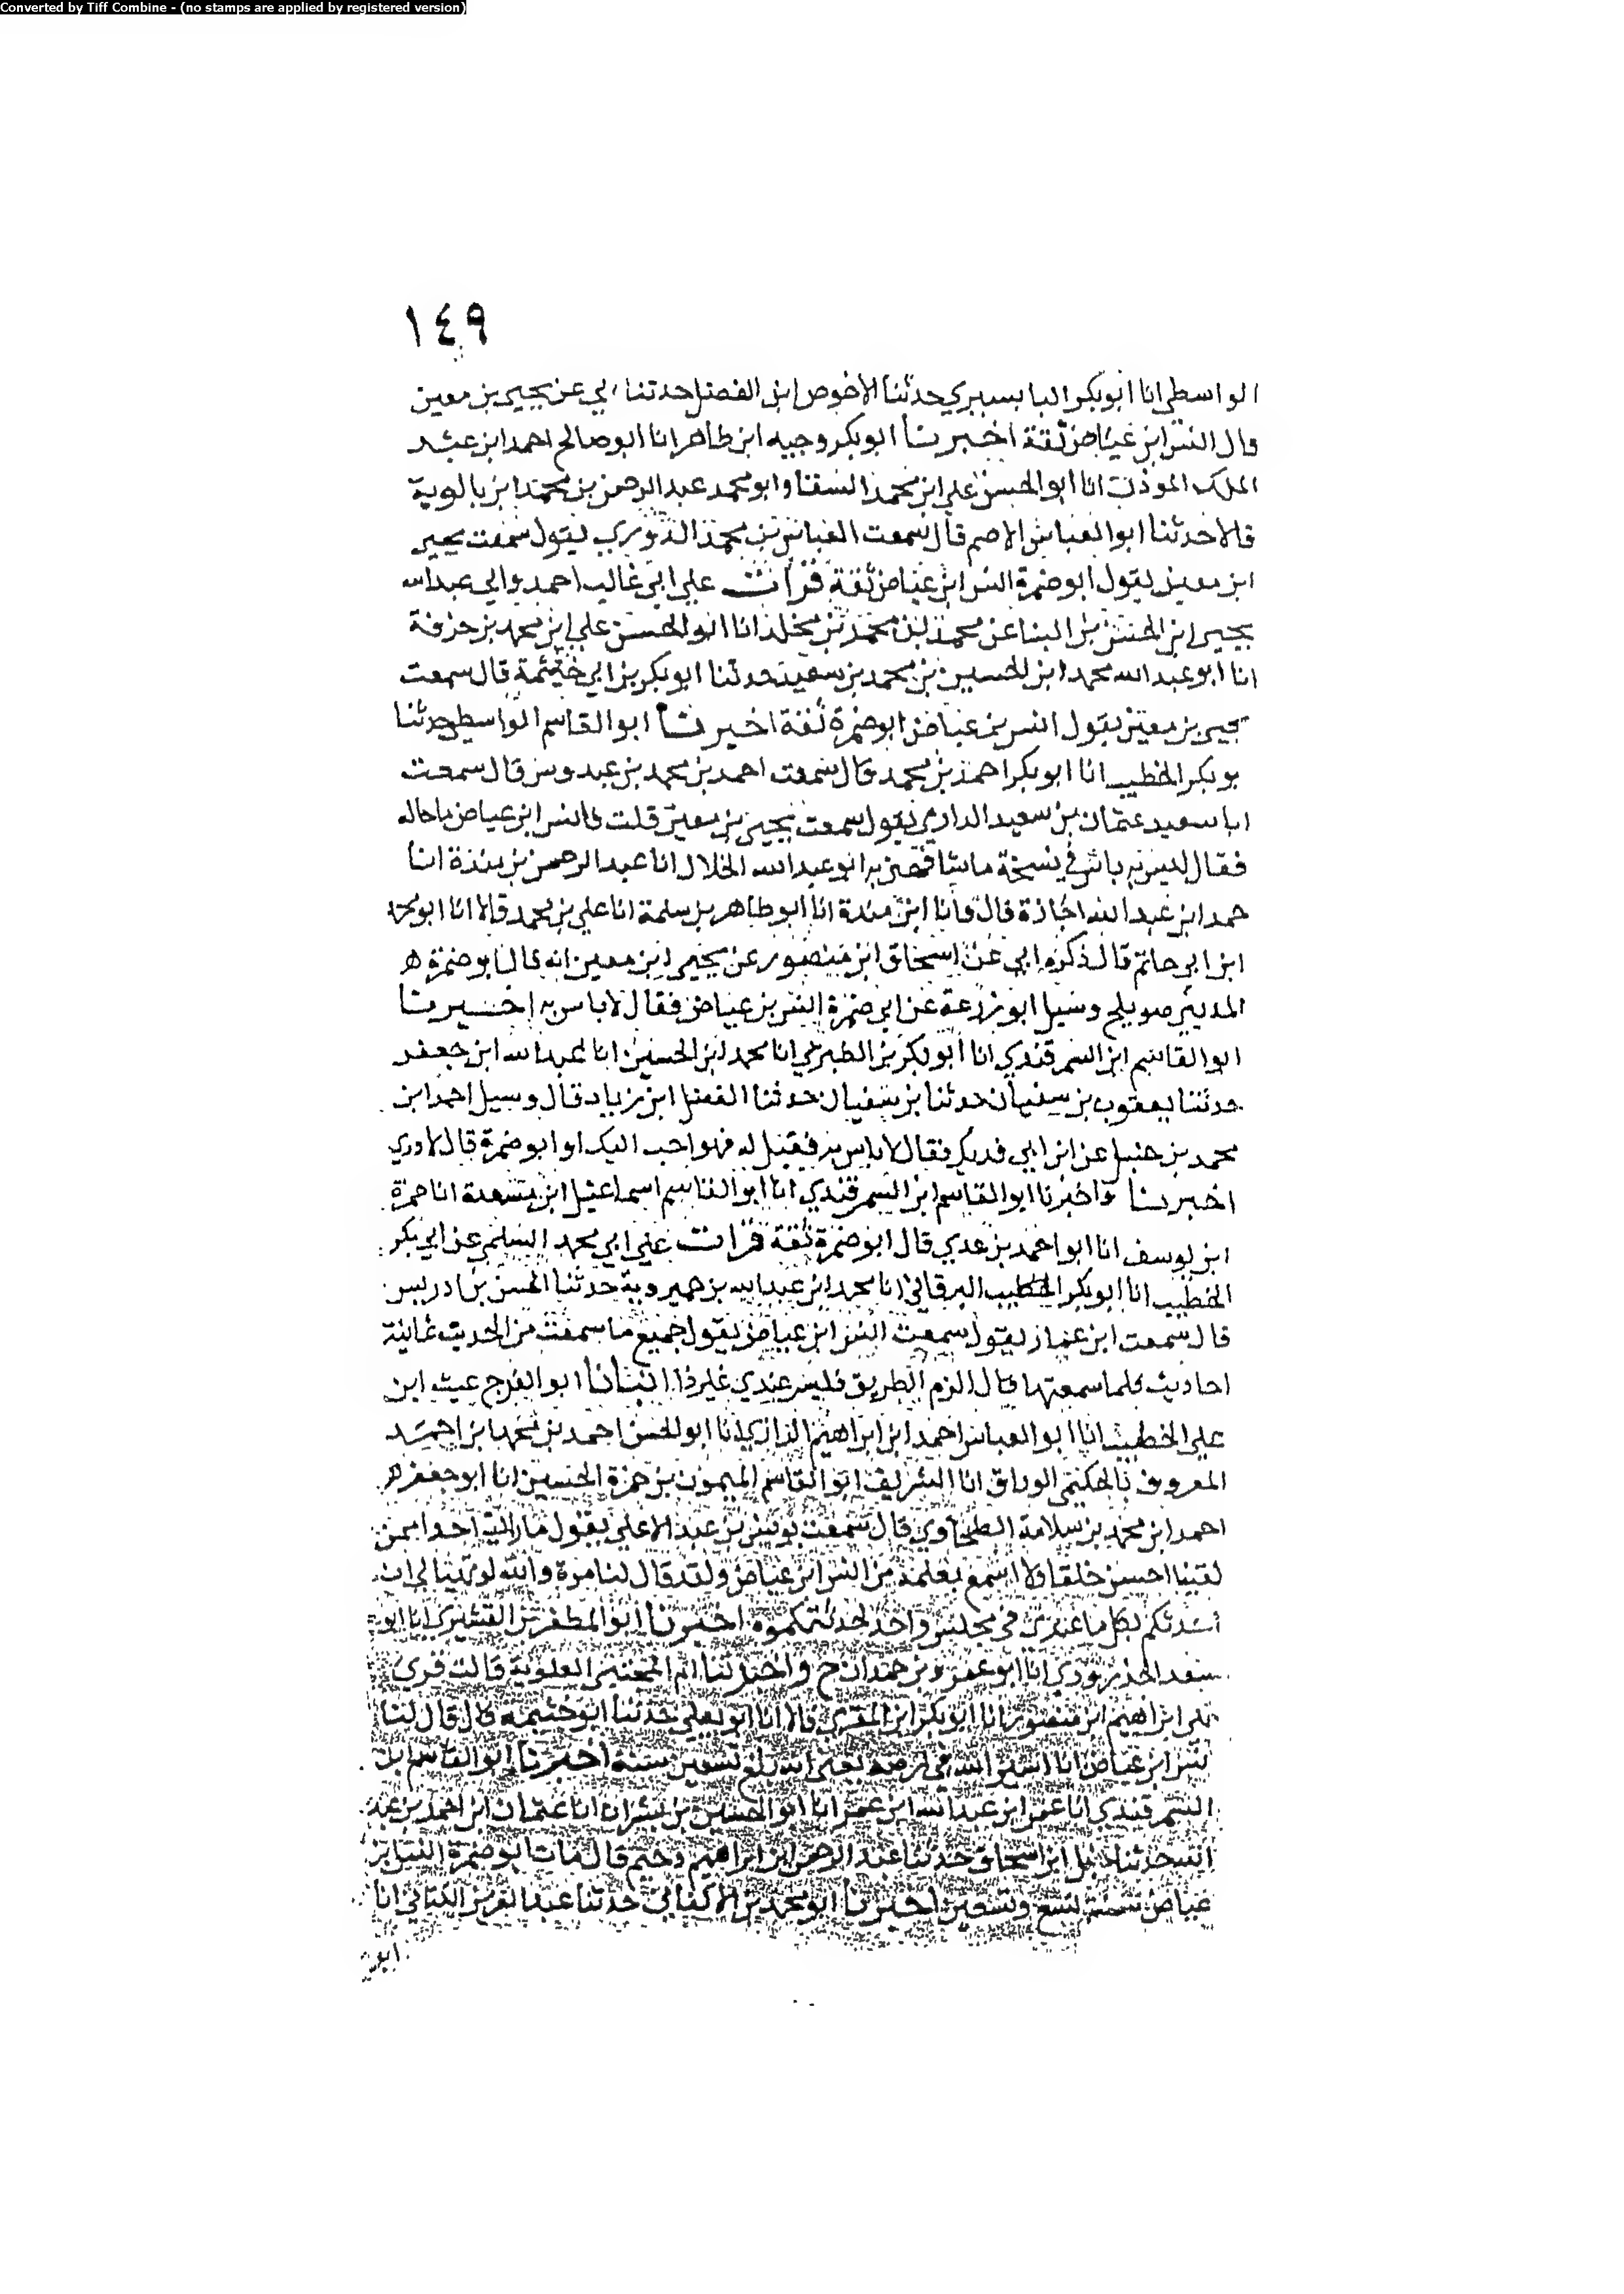 Converted by Tiff Combine - (no stamps are applied by registered version)
١٤٩
الواسطي انا ابوبكر البابسيري حدثنا الاخوص ابن الفضل حدثنا ابي عن يحيى بن معين
قال انس ابن عياض ثقة اخبرنا ابوبكر وجيه ابن طاهر انا ابوصالح احمد ابن عبد
الملك الموذن انا ابوالحسن علي ابن محمد السقا وابومحمد عبد الرحمن بن محمد ابن بالوية
قالا حدثنا ابوالعباس الاصم قال سمعت العباس بن محمد الدوري يقول سمعت يحيى
ابن معين يقول ابوضمرة انس ابن عياض ثقة قرات علي ابي غالب احمد وابي عبدالله
يحيى ابن الحسن بن البنا عن محمد بن محمد بن مخلد انا ابوالحسن علي ابن محمد بن خزفة
انا ابوعبدالله محمد ابن الحسين بن محمد بن سعيد حدثنا ابوبكر بن ابي خيثمة قال سمعت
يحيى بن معين يقول انس بن عياض ابوضمرة ثقة اخبرنا ابوالقاسم الواسطي حدثنا
بوبكر الخطيب انا ابوبكر احمد بن محمد قال سمعت احمد بن محمد بن عبدوس قال سمعت
ابا سعيد عثمان بن سعيد الدارمي يقول سمعت يحيى بن معين قلت فانس ابن عياض ما حاله
فقال ليس به باس في نسخة ما شافهني به ابوعبدالله الخلال انا عبدالرحمن بن مندة انا
حمد ابن عبدالله اجازة قال وانا ابن مندة انا ابوطاهر بن سلمة انا علي بن محمد قالا انا ابومحمد
ابن ابي حاتم قال ذكره ابي عن اسحاق ابن منصور عن يحيى ابن معين انه قال ابوضمرة ه
المديني صويلح وسيل ابوزرعة عن ابي ضمرة انس بن عياض فقال لاباس به اخبرنا
ابوالقاسم ابن السمرقندي انا ابوبكر بن الطبري انا محمد ابن الحسين انا عبدالله ابن جعفر
حدثنا يعقوب بن سفيان حدثنا بن سفيان حدثنا الفضل ابن زياد قال وسيل احمد ابن
محمد بن حنبل عن ابن ابي فديك فقال لاباس به فقيل له فهو احب اليك او ابوضمرة قال لاادري
اخبرنا واخبرنا ابوالقاسم ابن السمرقندي انا ابوالقاسم اسماعيل ابن مسعدة انا حمزة
ابن يوسف انا ابواحمد بن عدي قال ابوضمرة ثقة قرات علي ابي محمد السلمي عن ابي بكر
الخطيب انا ابوبكر الخطيب البرقاني انا محمد ابن عبدالله بن خميروية حدثنا الحسن بن ادريس
قال سمعت ابن عمار يقول سمعت انس ابن عياض يقول جميع ما سمعت من الحديث ثمانية
احاديث كلما سمعتها قال الزم الطريق فليس عندي غير ذا انبانا ابوالفرج غيث ابن
علي الخطيب انا ابوالعباس احمد ابن ابراهيم الرازي انا ابوالحسن احمد بن محمد ابن احمد
المعروف بالحكيمي الوراق انا الشريف ابوالقاسم الميمون بن حمزة الحسيني انا ابوجعفر ه
احمد ابن محمد بن سلامة الطحاوي قال سمعت يونس بن عبد الاعلى يقول ما رايت احدا ممن
لقينا احسن خلقا ولا اسمع بعلمه من انس ابن عياض ولقد قال لنا مرة والله لو تهيا لي ان
احدثكم بكل ما عندي في مجلس واحد لحدثتكموه اخبرنا ابوالمظفر بن القشيري انا ابو
سعد الجنزرودي انا ابوعمرو بن حمدان ح واخبرتنا ام المجتبى العلوية قالت قري
علي ابراهيم ابن منصور انا ابوبكر ابن المقري قالا انا ابويعلي حدثنا ابوخيثمة قال قال لنا
انس ابن عياض انا اسير الله في ارضه يعني انه بلغ تسعين سنة اخبرنا ابوالقاسم ابن
السمرقندي انا عمر ابن عبيدالله ابن عمر انا ابوالحسين بن بشران انا عثمان ابن احمد بن عبد
الله حدثنا حنبل ابن اسحاق حدثنا عبدالرحمن ابن ابراهيم دحيم قال مات ابوضمرة انس ابن
عياض سنة تسع وتسعين اخبرنا ابومحمد بن الاكفاني حدثنا عبدالعزيز الكتاني انا